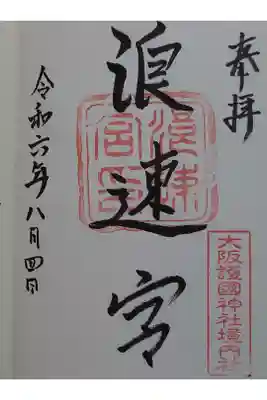 奉拝
浪速宮
浪速宮印
大阪護國神社境内社
令和六年八月四日